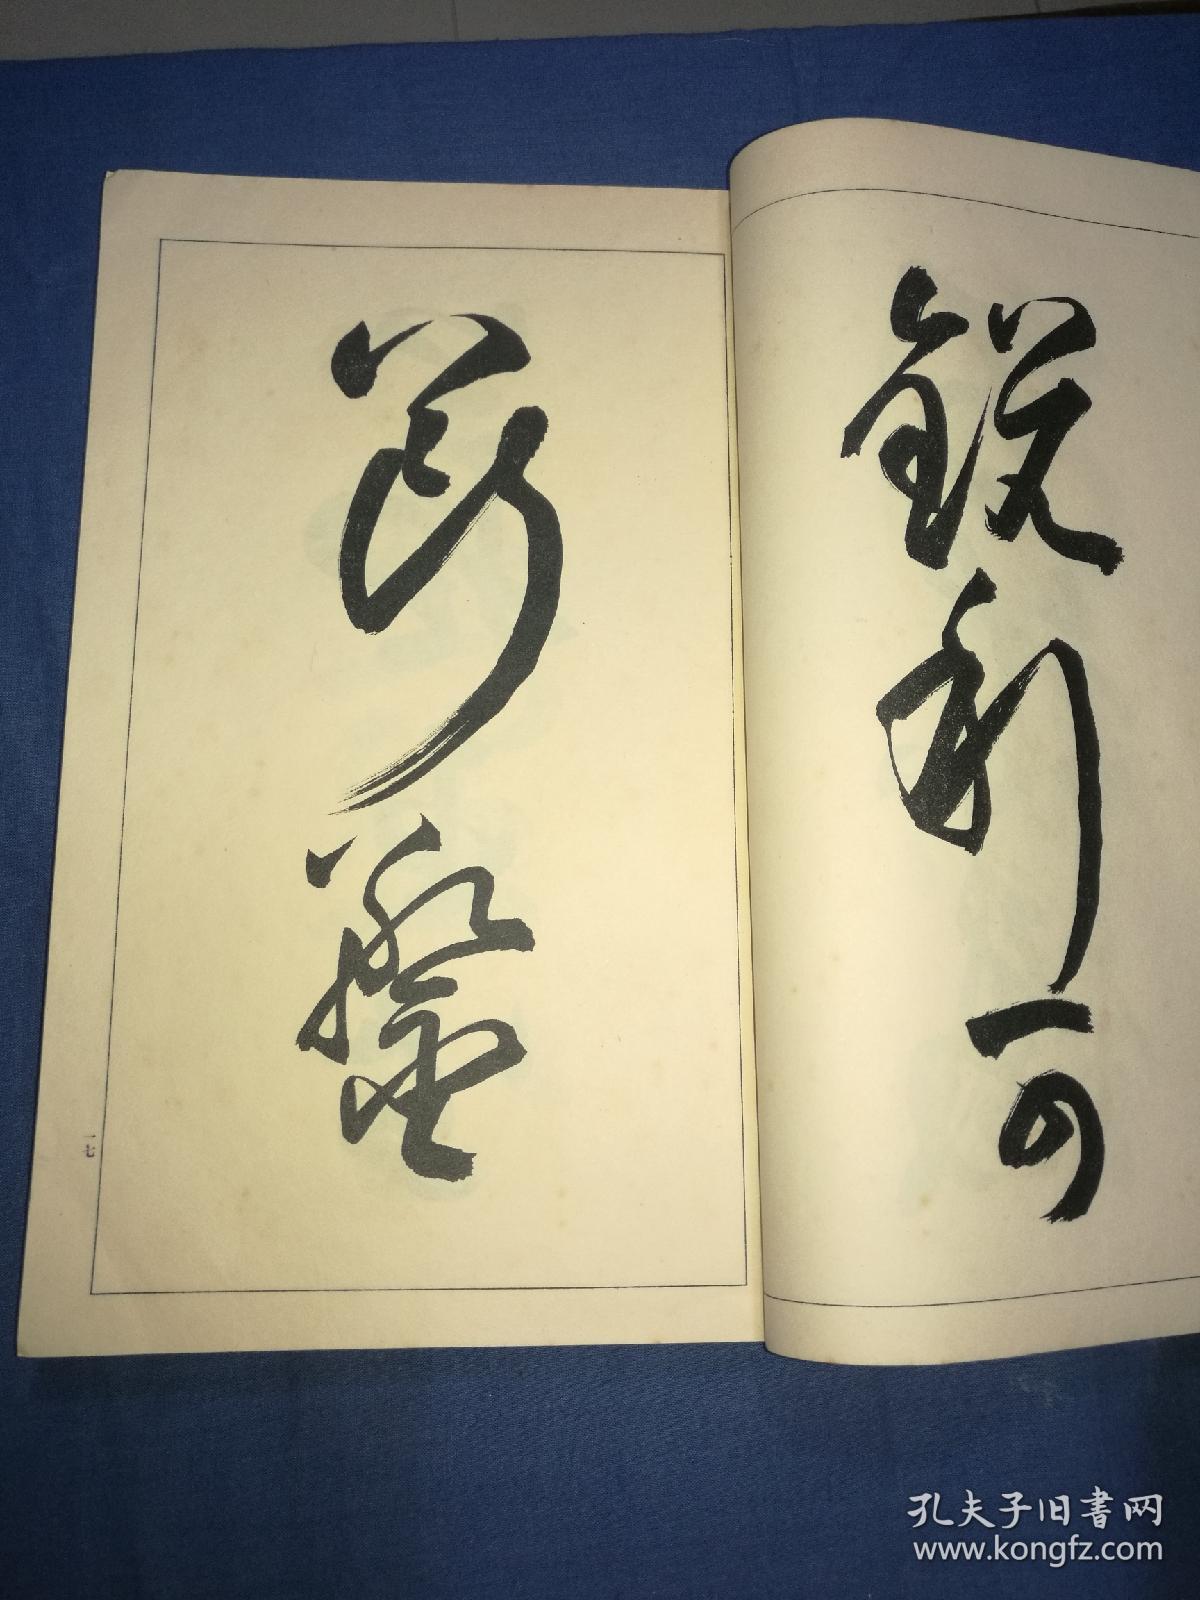 鋭利可
断盤
一七
孔夫子旧書网
www.kongfz.com